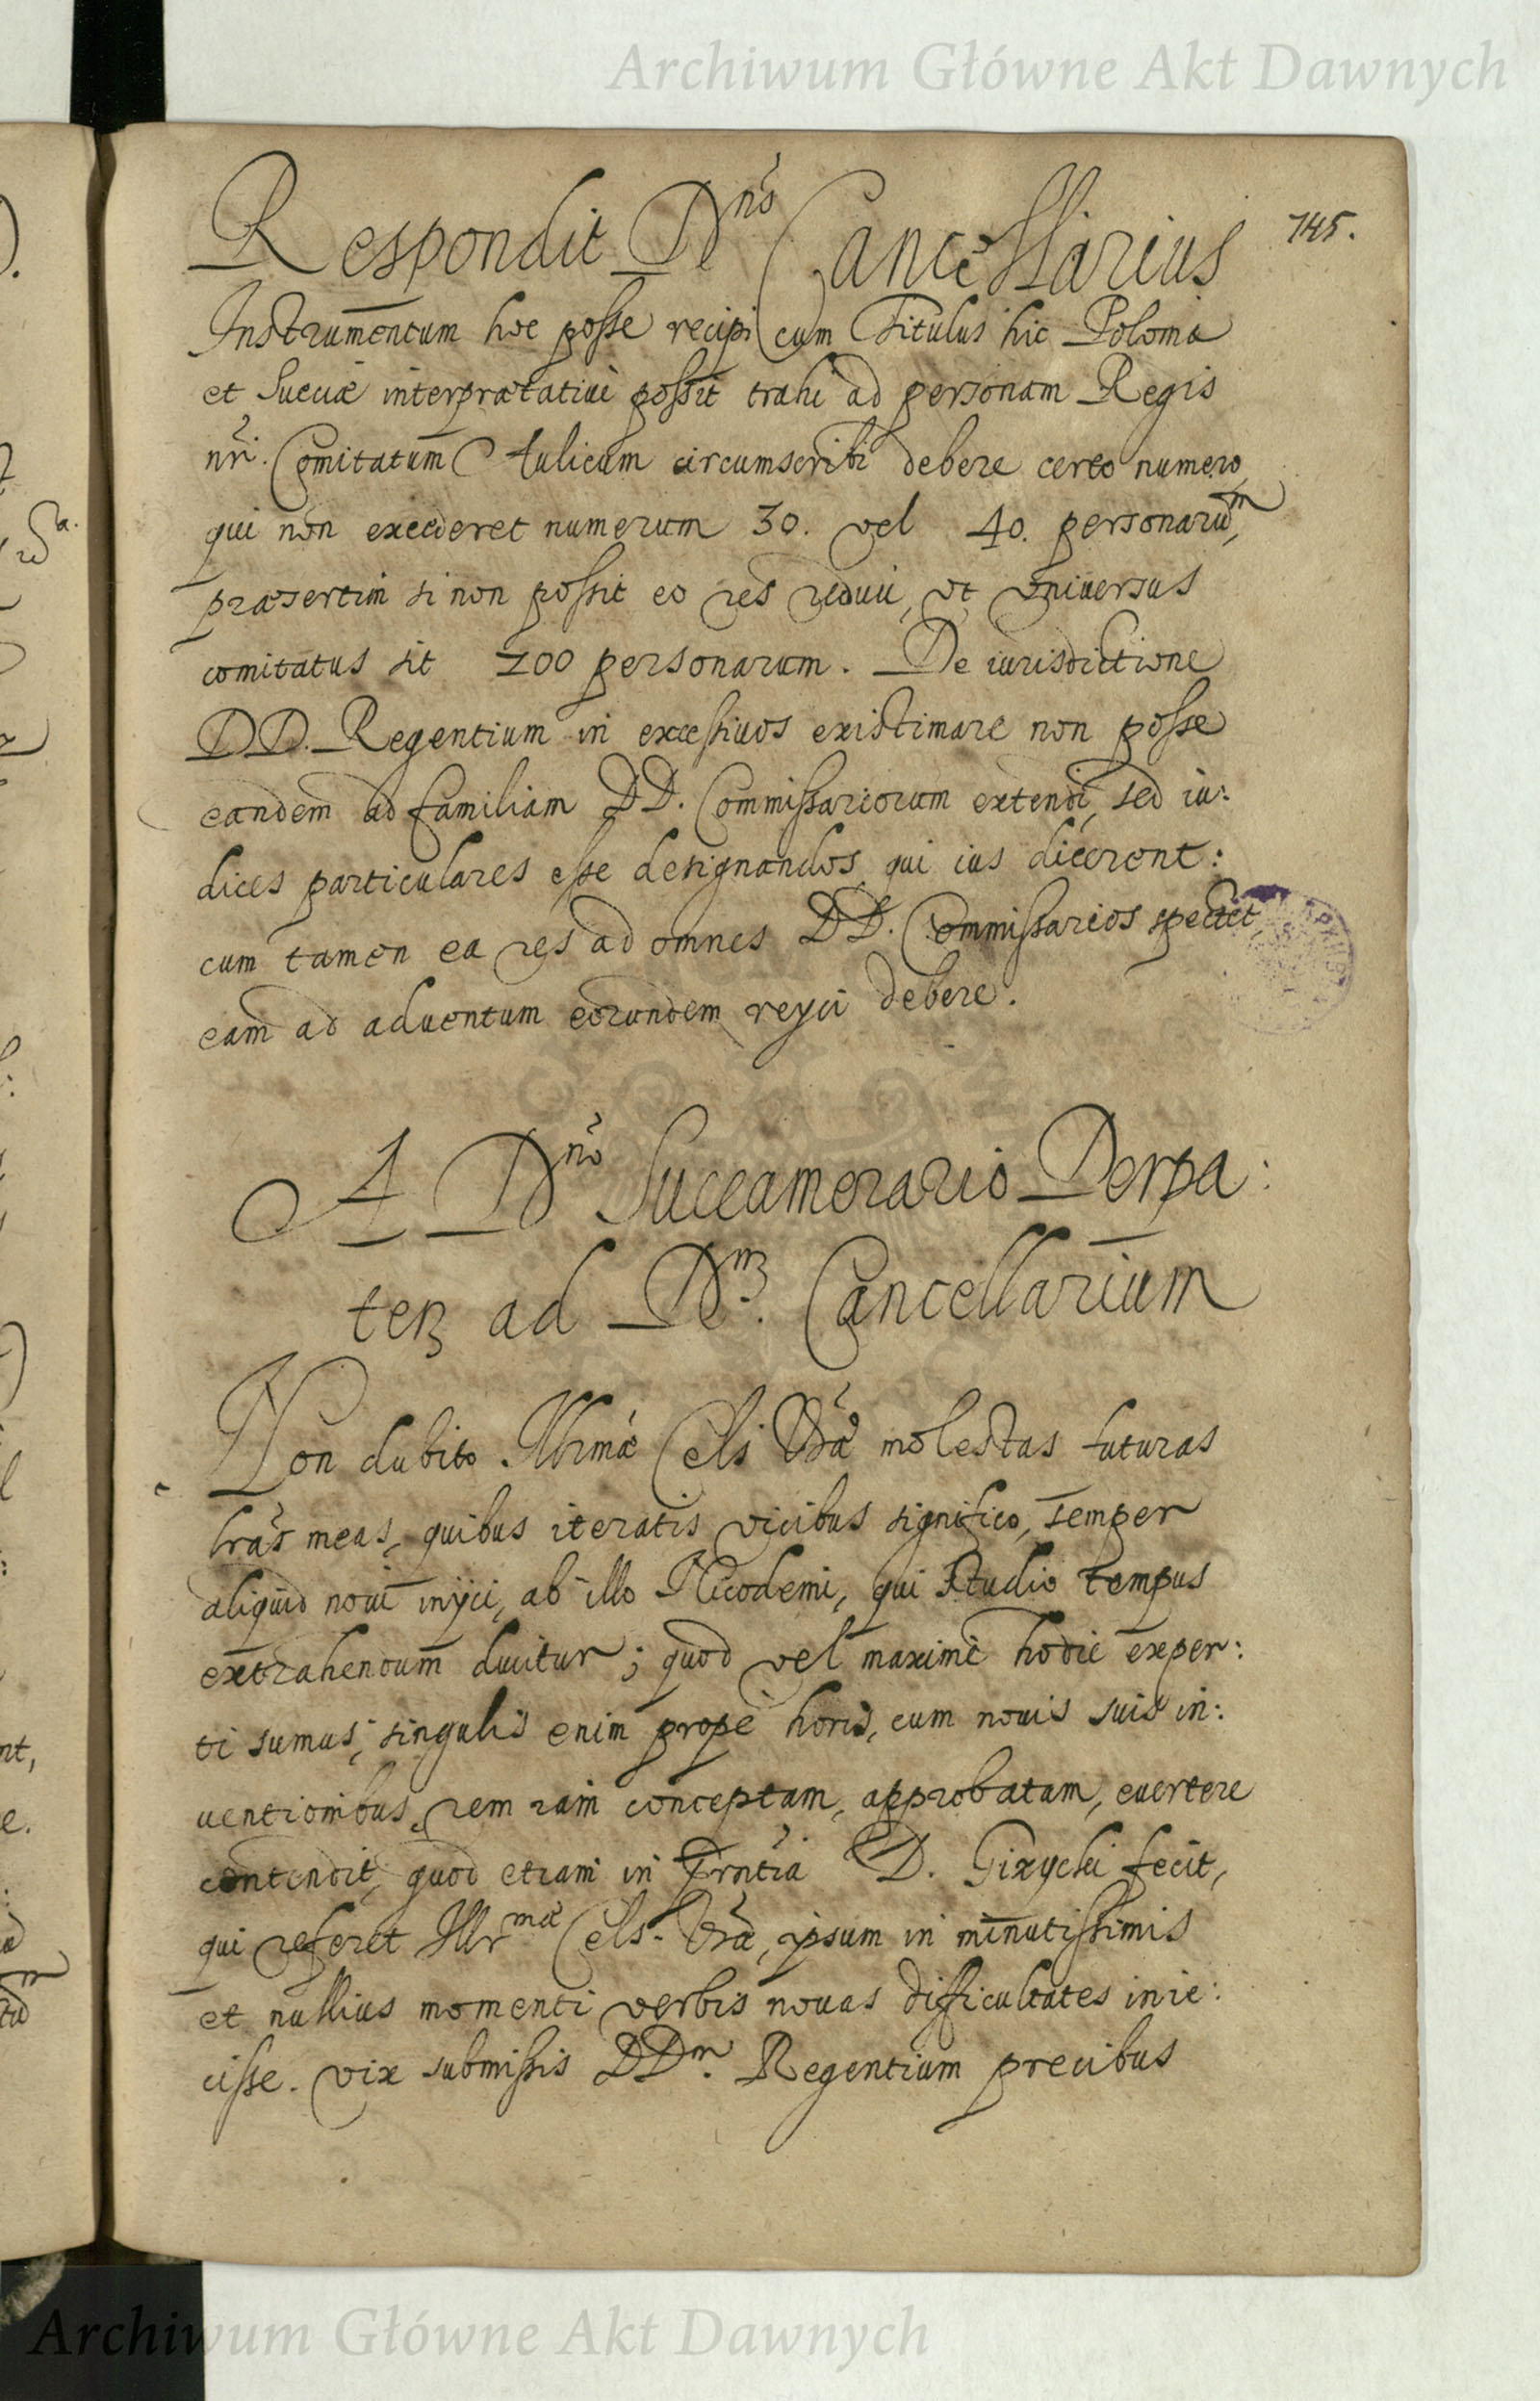 Archiwum Główne Akt Dawnych
145.
Respondit Dnus Cancellarius
Instrumentum hoc posse recipi cum Titulus hic Poloniæ
et Sueciæ interprætatiué possit trahi ad personam Regis
nri. Comitatum Aulicum circumscribi debere certo numero,
qui non excederet numerum 30. vel 40. personarum,
præsertim si non possit eo res reduci, vt vniuersus
comitatus sit 200 personarum. De iurisdictione
DD. Regentium in excessiuos existimare non posse
eandem ad familiam DD. Commissariorum extendi, sed iu:
dices particulares esse designandos, qui ius dicerent:
cum tamen ea res ad omnes DD. Commissarios spectet,
eam ad aduentum eorundem reyci debere.
A Dno Succamerario Derpa:
ten ad Dnm. Cancellarium
Non dubito Illrmæ Cels Vræ molestas futuras
lras meas, quibus iteratis vicibus significo, semper
aliquid noui inyci, ab illo Nicodemi, qui studio tempus
extrahendum ducitur; quod vel maximè hodie exper:
ti sumus; singulis enim propè horis, cum nouis suis in:
uentionibus, rem iam conceptam, approbatam, euertere
contendit, quod etiam in Prntia D. Gizycki fecit,
qui referet Illrmæ Cels. Vræ, ipsum in minutissimis
et nullius momenti verbis nouas difficultates inie:
cisse. vix submissis DDm. Regentium precibus
Archiwum Główne Akt Dawnych